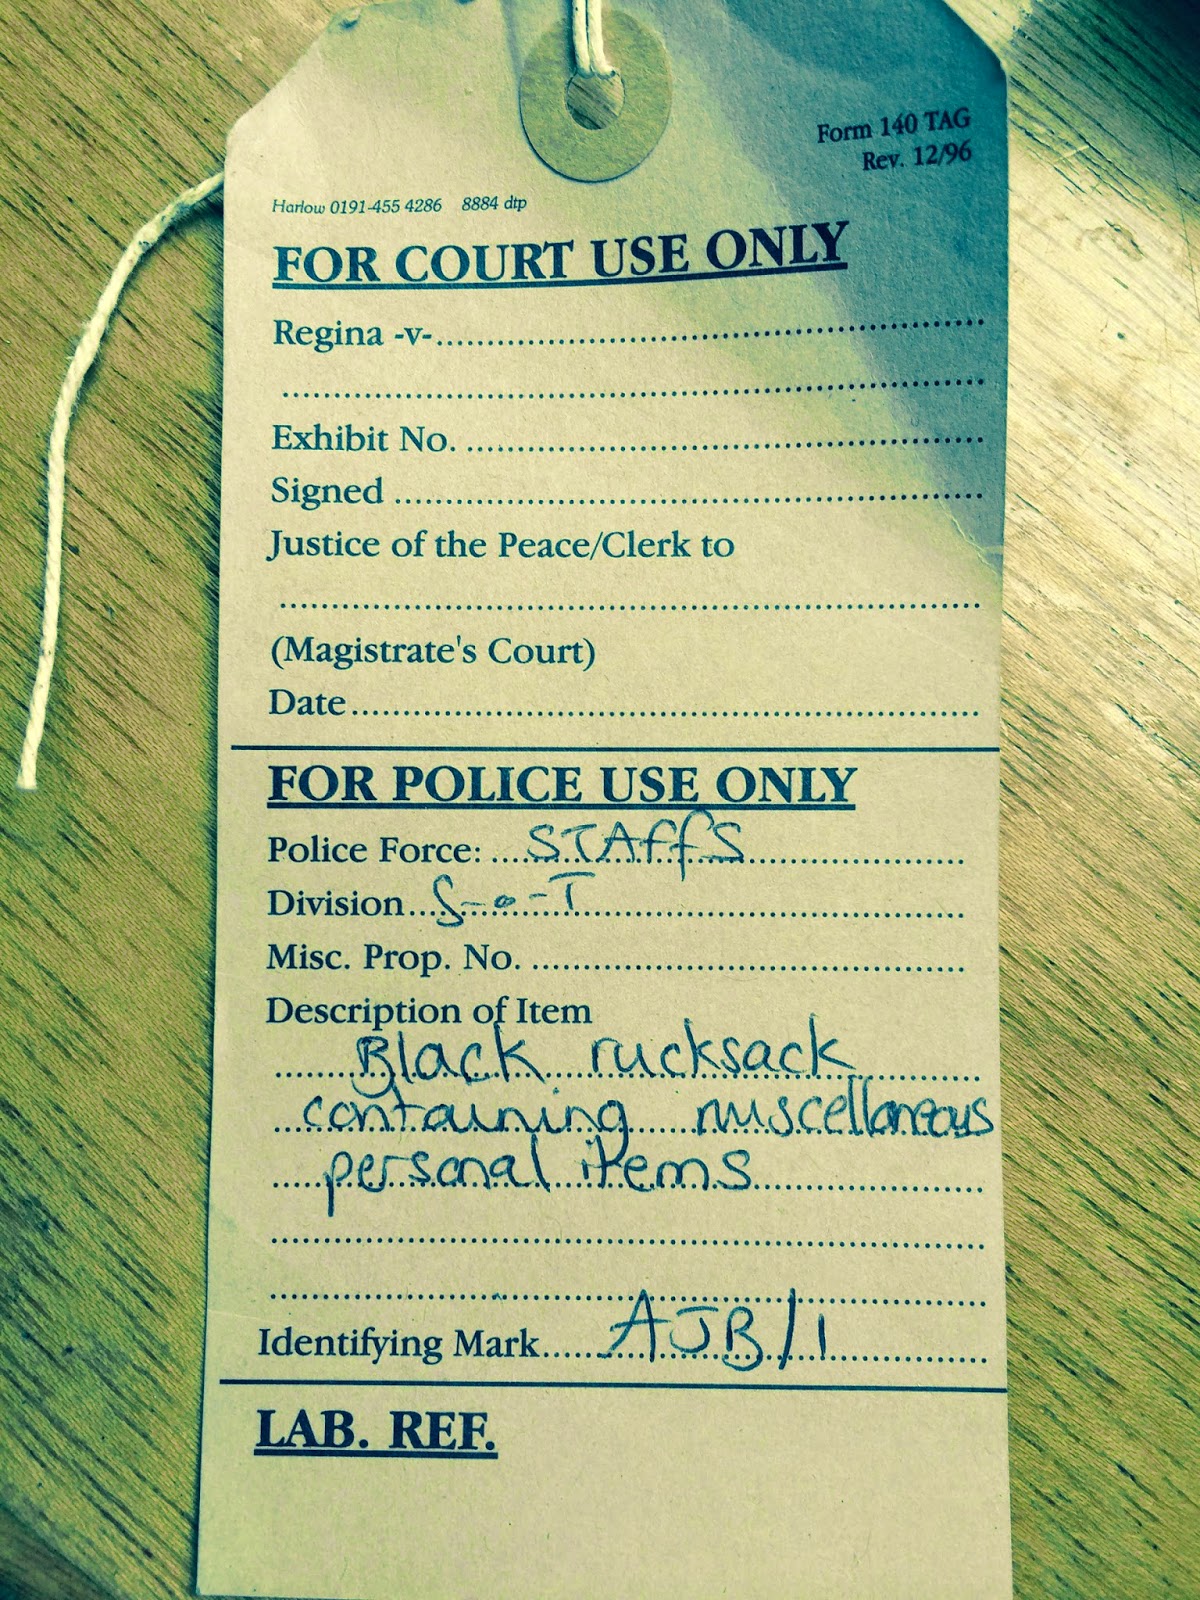 Form 140 TAG
Rev. 12/96
Harlow 0191-455 4286 8884 dtp
FOR COURT USE ONLY
Regina -v-
Exhibit No.
Signed
Justice of the Peace/Clerk to
(Magistrate's Court)
Date
FOR POLICE USE ONLY
Police Force: STAffS
Division S-o-T
Misc. Prop. No.
Description of Item
Black rucksack
containing miscellaneous
personal items
Identifying Mark AJB/1
LAB. REF.